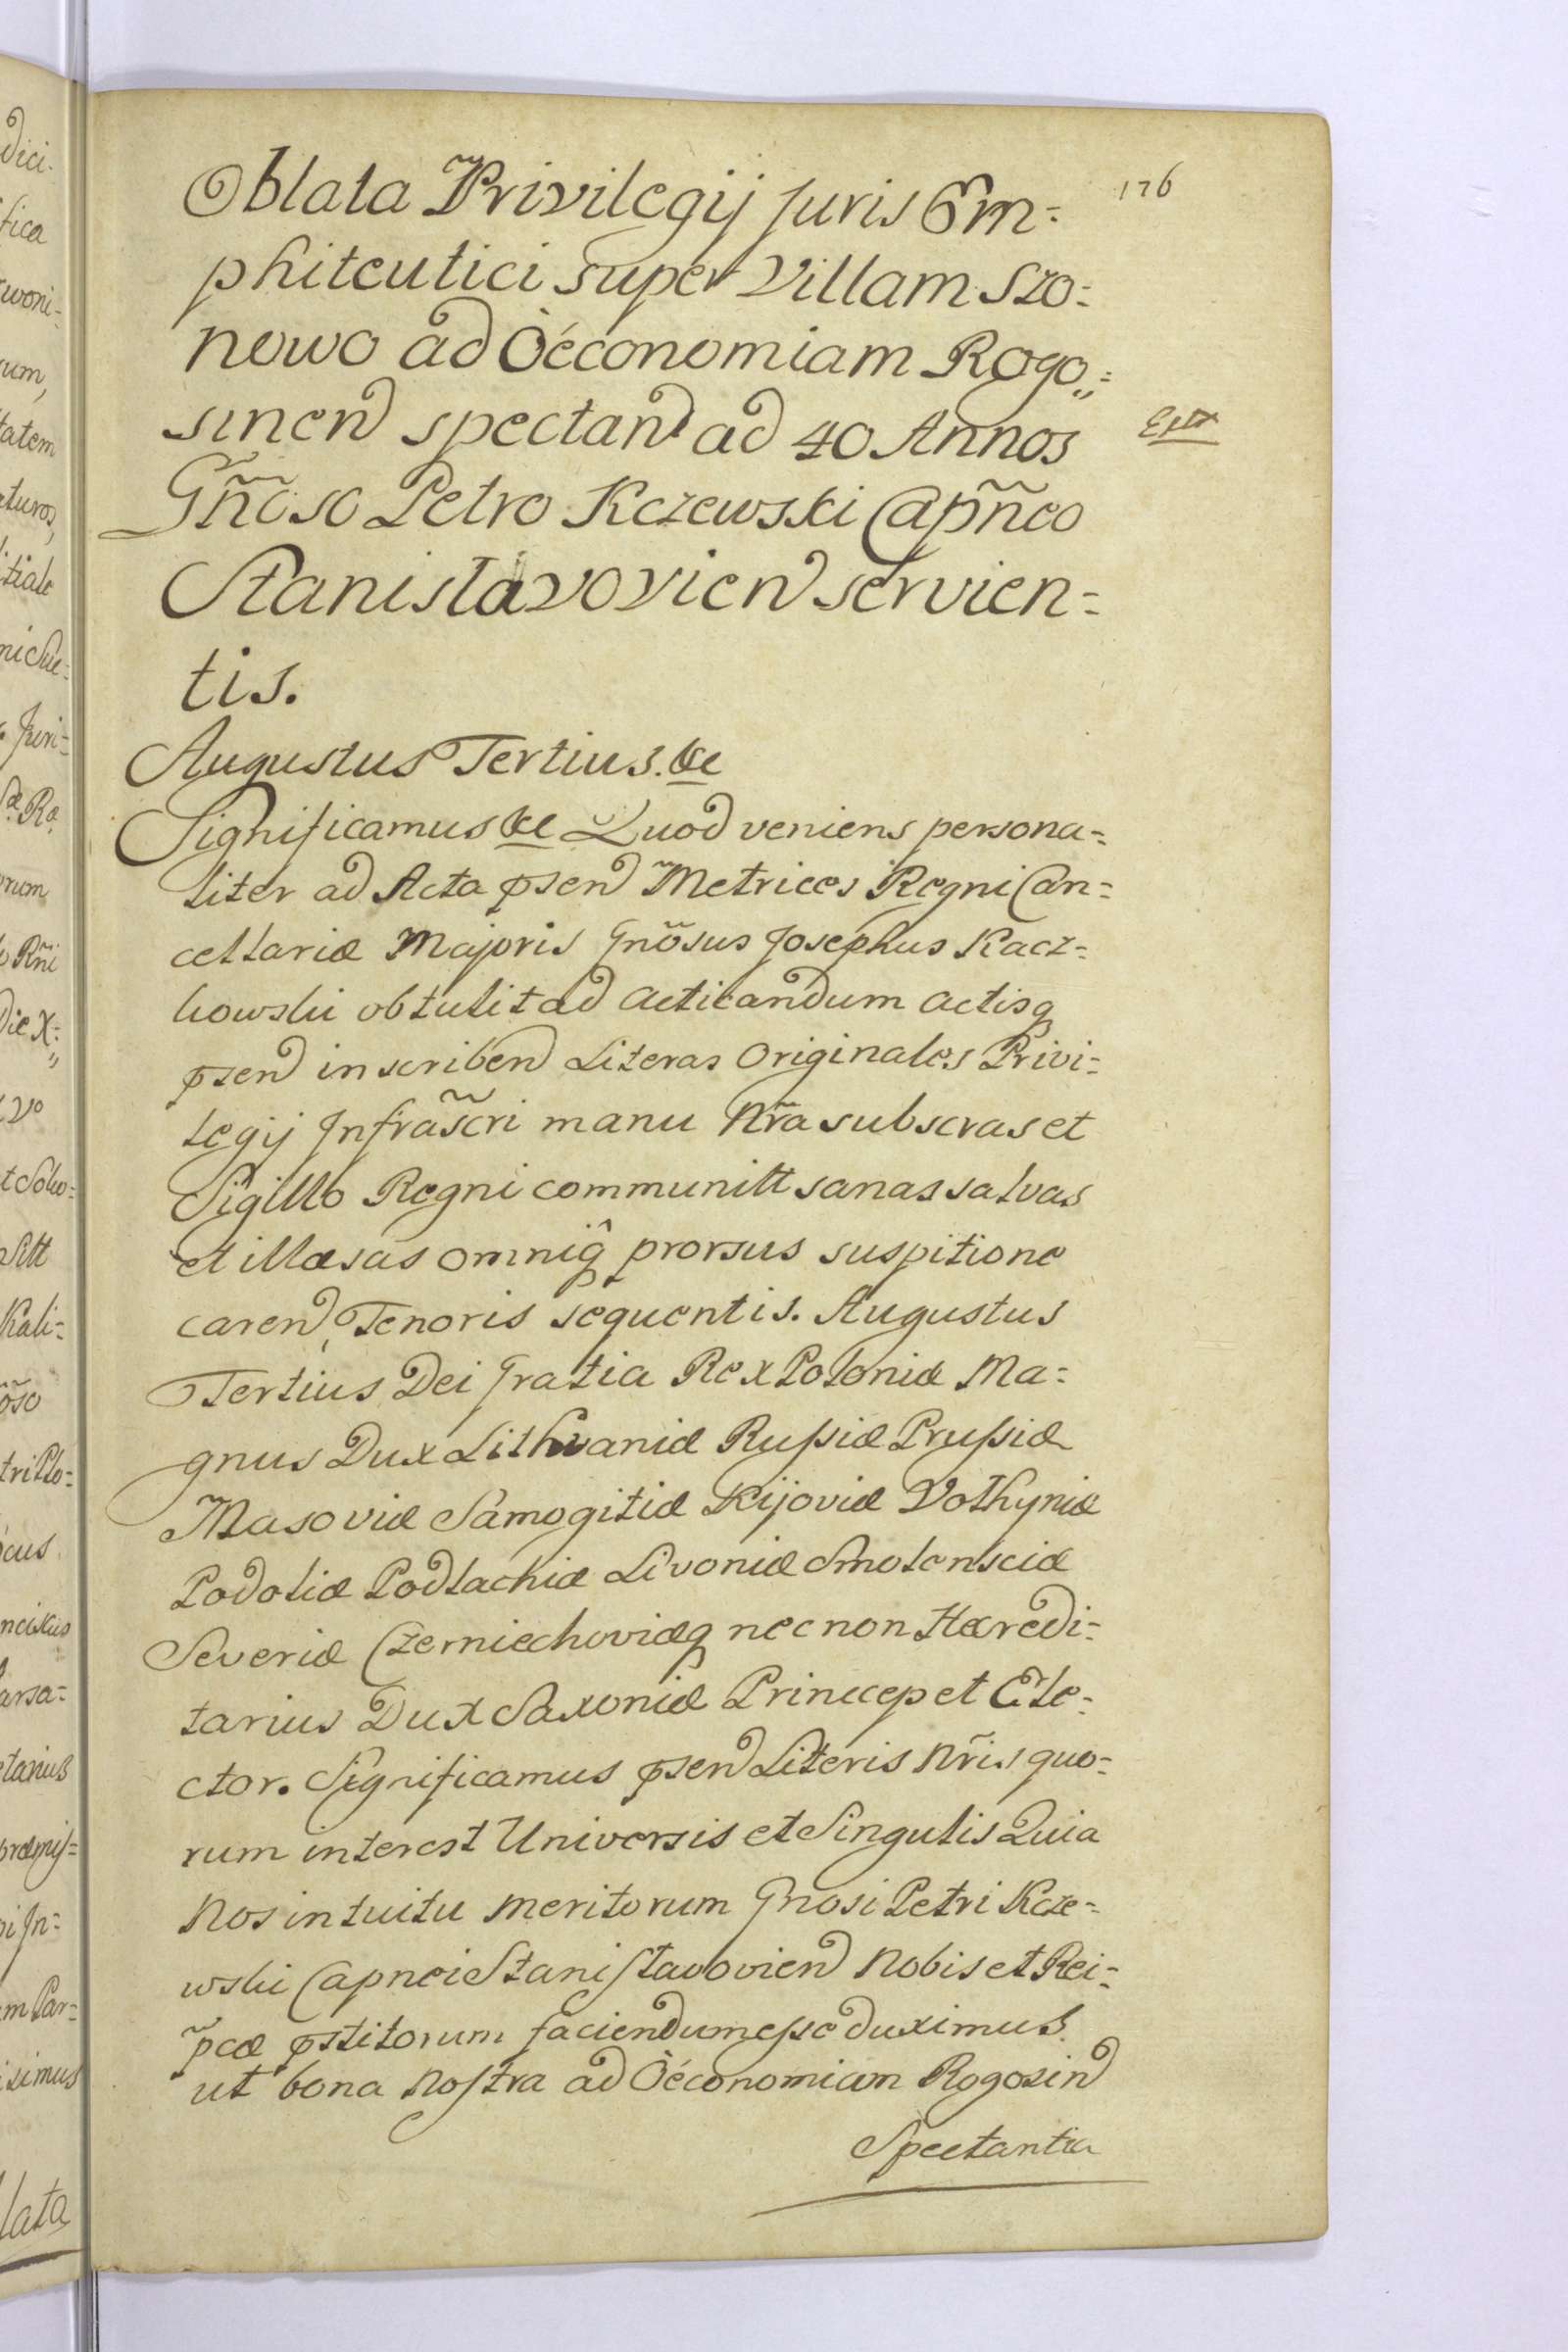 176
Oblata Privilegij Juris Em=
phiteutici super Villam Szo=
nowo ad Oéconomiam Rogo=
sinen spectan ad 40 Annos
Gñoso Petro Kczewski Capñeo
Stanislavovien servien=
tis.
Augustus Tertius. &c
Significamus &c Quod veniens persona=
liter ad Acta psen Metrices Regni Can=
cellariæ Majoris Gnõsus Josephus Kacz=
kowski obtulit ad acticandum actisq
psen inscriben Literas Originales Privi=
legij Infrascri manu Nra subscras et
Sigillo Regni communitt sanas salvas
et illæsas omniq prorsus suspitione
caren, Tenoris sequentis. Augustus
Tertius Dei Gratia Rex Poloniæ Ma=
gnus Dux Lithvaniæ Rußiæ Prußiæ
Masoviæ Samogitiæ Kijoviæ Volhyniæ
Podoliæ Podlachiæ Livoniæ Smolensciæ
Severiæ Czerniechoviæq nec non Hæredi=
tarius Dux Saxoniæ Princep et Ele=
ctor. Significamus psen Literis Nris quo=
rum interest Universis et Singulis Quia
Nos intuitu meritorum Gnosi Petri Kcze=
wski Capnei Stanislavovien Nobis et Rei=
pcæ pstitorum faciendum eße duximus
ut bona Nostra ad Oéconomiam Rogozin
Spectantia
dici=
fica
woni=
um,
tatem
turos,
tiale
Juri=
rum
Rñi
Die X=
Vo
Sitt
Kali=
õso
cus.
nciscus
arsa=
tarius
ræmis=
i In=
m Par=
simus
lata